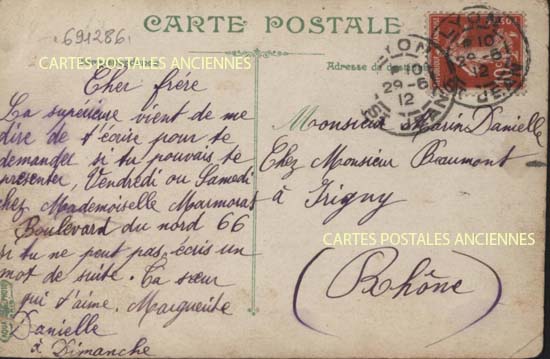 CARTE POSTALE
691286
Cher frére
La supérieure vient de me
dire de t'écrire pour te
demander si tu pouvais te
présenter, Vendredi ou Samedi
chez Mademoiselle Marmorat
Boulevard du nord 66
si tu ne peut pas écris un
mot de suite. Ta sœur
qui t'aime. Marguerite
Danielle
à Dimanche
Adresse du
Monsieur Marin Danielle
Chez Monsieur Beaumont
à Irigny
(Rhône)
LYON
ST JEAN
10
29-6
12
10
29-6
12
ST JEAN
10
CARTES POSTALES ANCIENNES
CARTES POSTALES ANCIENNES